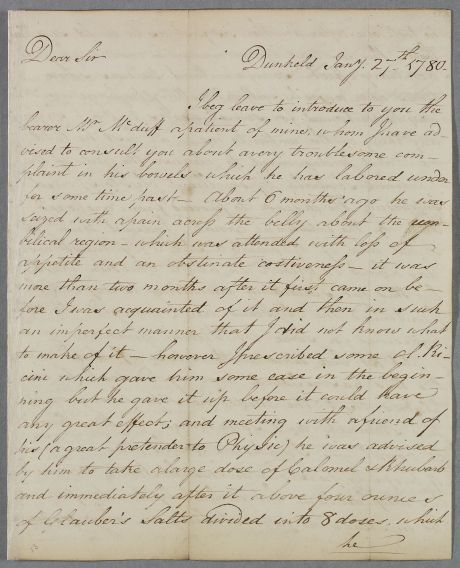 Dear Sir
Dunkeld Jany. 27th 1780
I beg leave to introduce to you the
bearer Mr McDuff a patient of mine, whom I have ad-
vised to consult you about a very troublesome com-
plaint in his bowels which he has labored under
for some time past — About 6 months ago he was
seized with a pain across the belly about the um-
bilical region — which was attended with loss of
appetite and an obstinate costiveness — it was
more than two months after it first came on be-
fore I was acquainted of it and then in such
an imperfect manner that I did not know what
to make of it — however I prescribed some ol. Ri-
cini which gave him some ease in the begin-
ning but he gave it up before it could have
any great effect; and meeting with a friend of
his (a great pretender to Physic) he was advised
by him to take a large dose of Calomel & Rhubarb
and immediately after it above four ounces
of Glauber's Salts divided into 8 doses, which
he